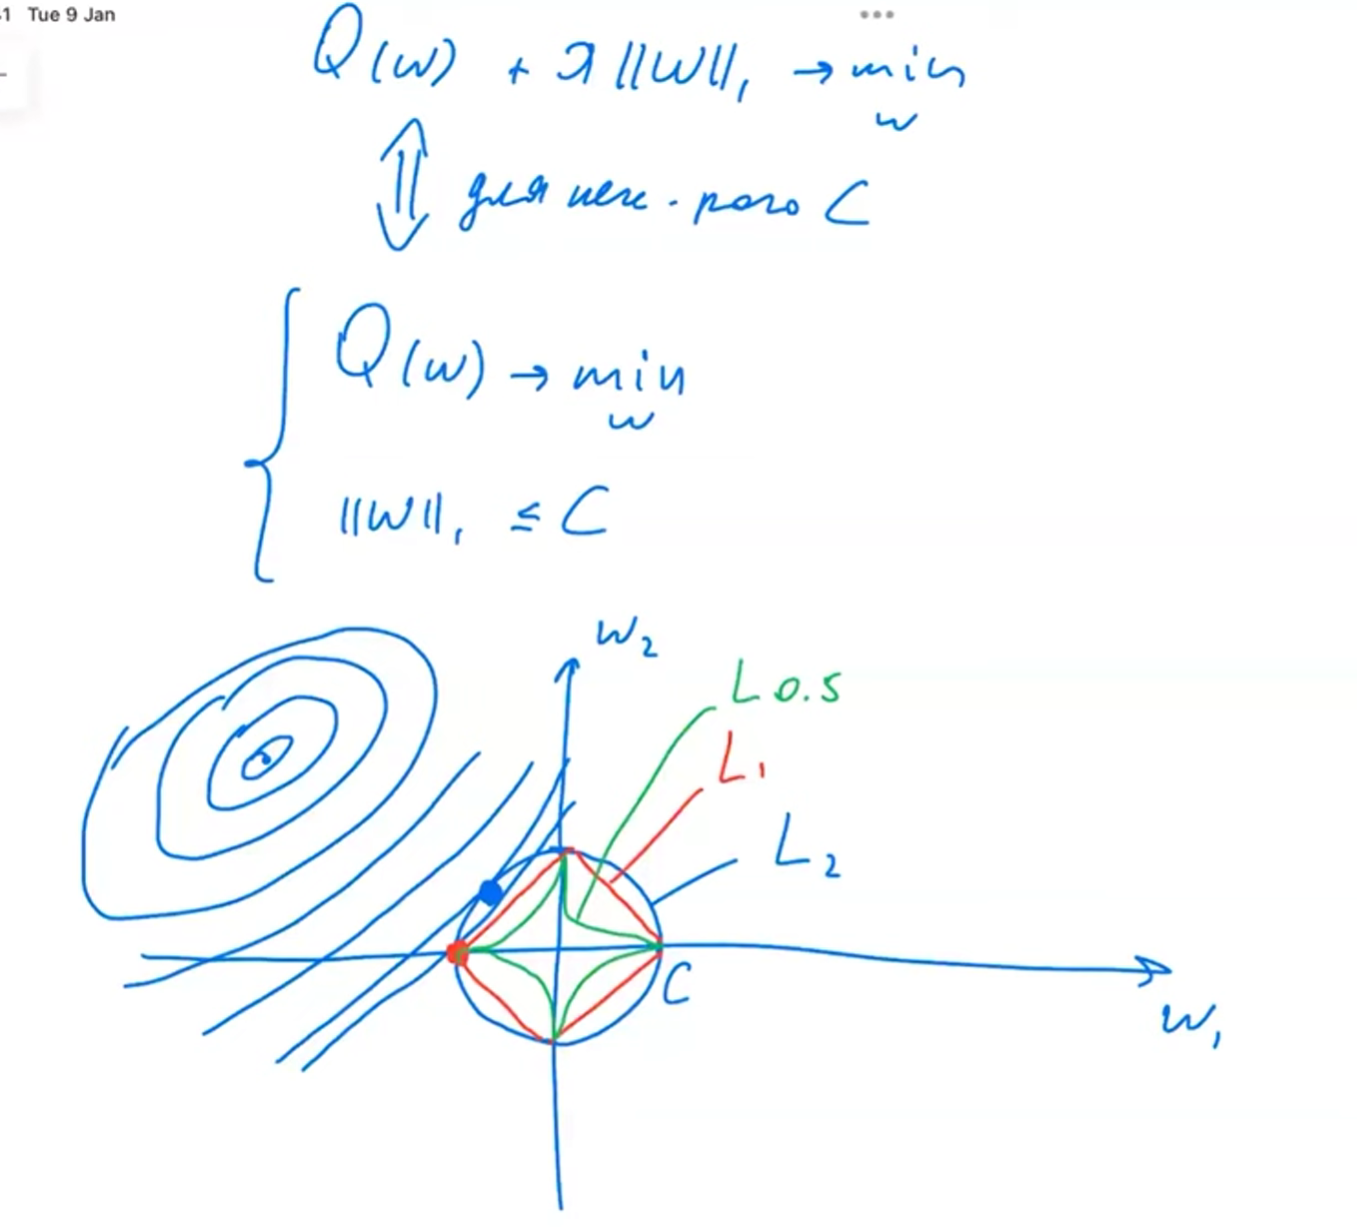 1 Tue 9 Jan
Q(w) + λ||w||₁ → min
w
для нек-рого C
Q(w) → min
w
||w||₁ ≤ C
w₂
L0.5
L₁
L₂
C
w₁